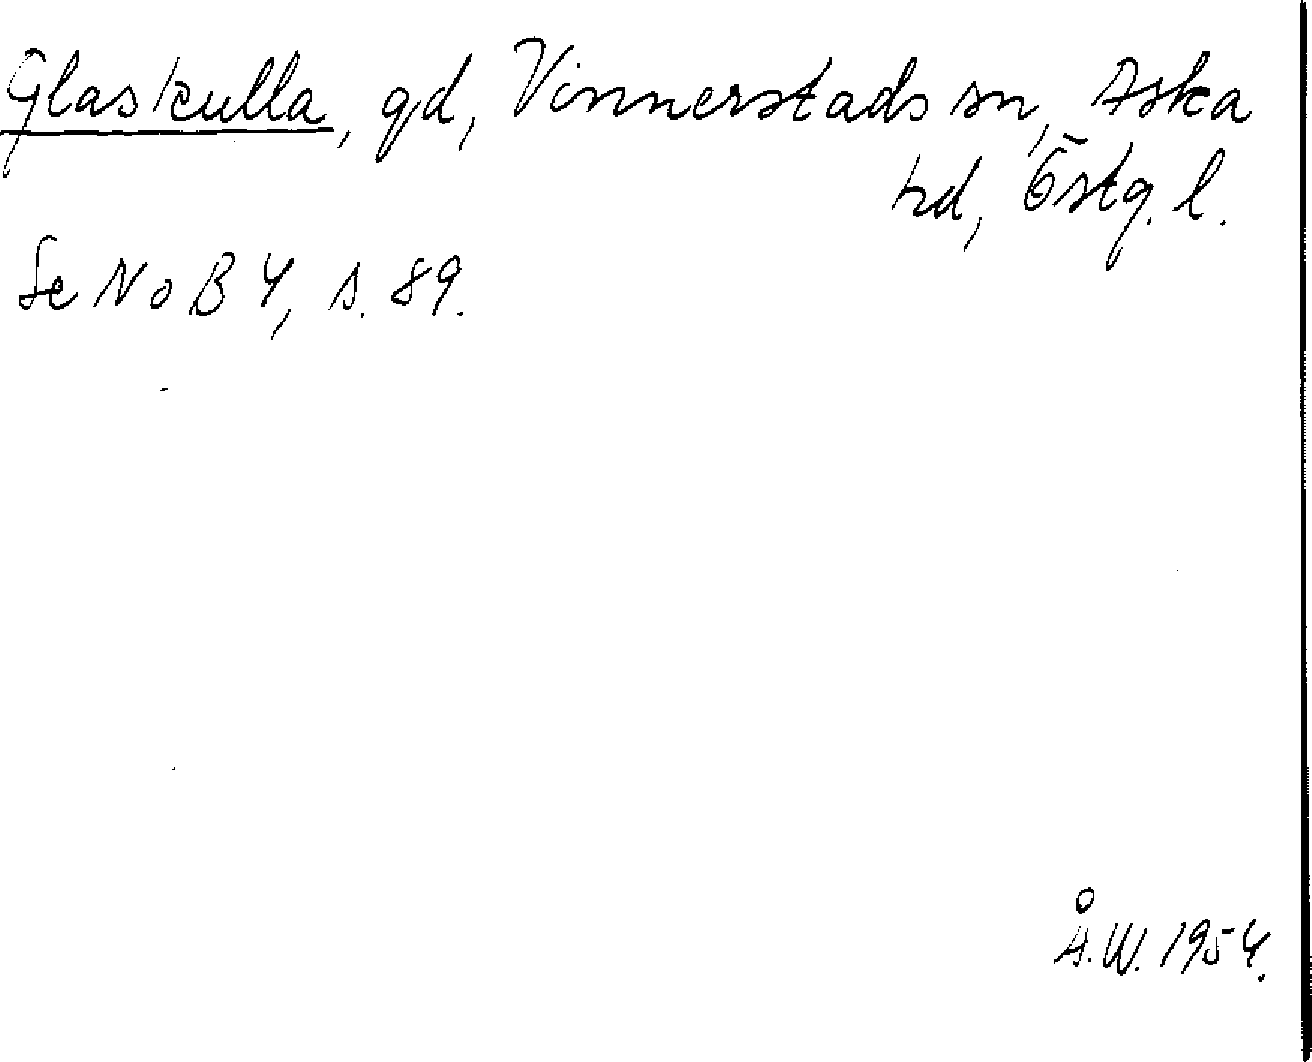 Glaskulla, gd, Vinnerstads sn, Aska
hd, Östg. l.
Se NoB 4, s. 89.
Å.W. 1954.